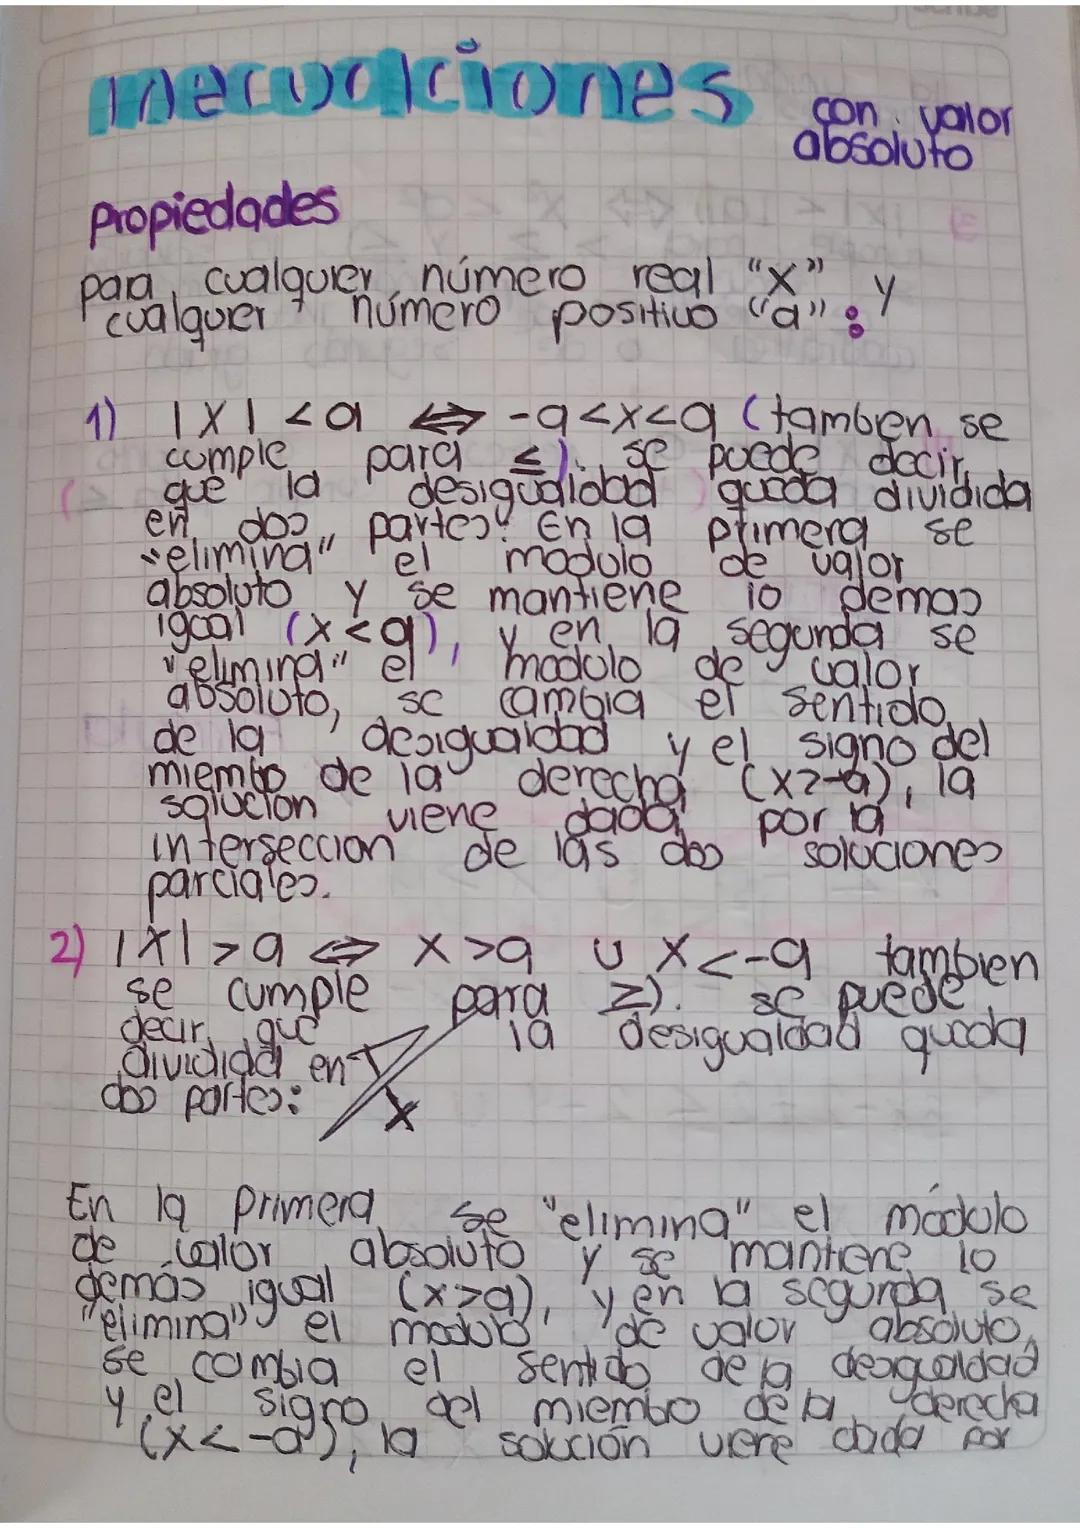 Inecuaciones con valor
absoluto
Propiedades
para cualquier número real "x" y
cualquier número positivo "a":
1) |x| < a ⇔ -a<x<a (tambien se
cumple para ≤). se puede decir
que la desigualdad queda dividida
en dos partes: En la primera se
"elimina" el modulo de valor
absoluto y se mantiene lo demas
igual (x<a), y en la segunda se
"elimina" el modulo de valor
absoluto, se cambia el sentido
de la desigualdad y el signo del
miembo de la derecha (x>-a), la
solucion viene dada por la
interseccion de las dos soluciones
parciales.
2) |x| > a ⇔ x >a ∪ x<-a tambien
se cumple para ≥). se puede
decir que la desigualdad queda
dividida en
dos partes: x
En la primera se "elimina" el módulo
de valor absoluto y se mantiene lo
demás igual (x>a), y en la segunda se
"elimina" el modulo de valor absoluto,
se cambia el sentido de la desigualdad
y el signo del miembo de la derecha
(x<-a), la solución viene dada por